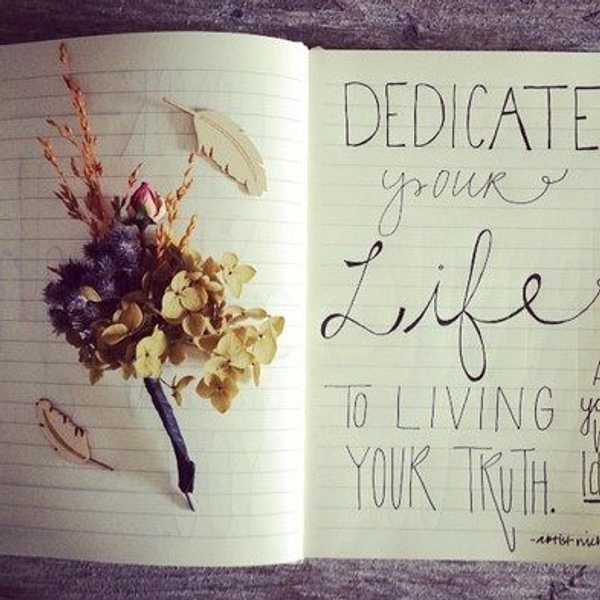 DEDICATE
your
Life
TO LIVING
YOUR TRUTH.
-artist